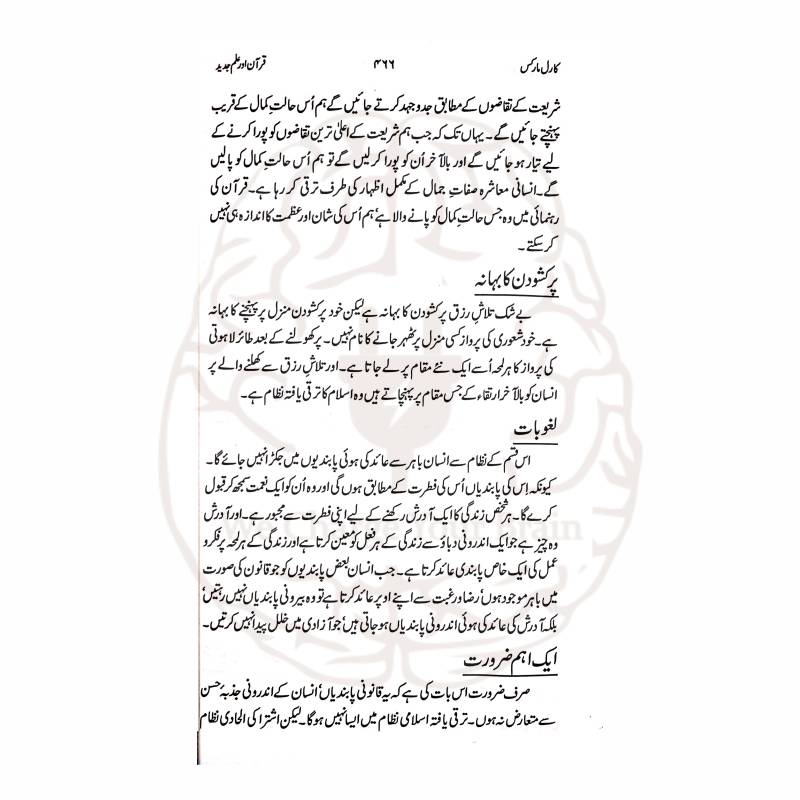 کارل مارکس ۴۶۶ قرآن اور علم جدید
شریعت کے تقاضوں کے مطابق جدوجہد کرتے جائیں گے ہم اُس حالتِ کمال کے قریب
پہنچتے جائیں گے۔ یہاں تک کہ جب ہم شریعت کے اعلیٰ ترین تقاضوں کو پورا کرنے کے
لیے تیار ہو جائیں گے اور بالآخر اُن کو پورا کر لیں گے تو ہم اُس حالتِ کمال کو پالیں
گے۔ انسانی معاشرہ صفاتِ جمال کے مکمل اظہار کی طرف ترقی کر رہا ہے۔ قرآن کی
رہنمائی میں وہ جس حالتِ کمال کو پانے والا ہے ہم اُس کی شان اور عظمت کا اندازہ ہی نہیں
کر سکتے۔
پر کشودن کا بہانہ
بے شک تلاشِ رزق پر کشودن کا بہانہ ہے لیکن خود پر کشودن منزل پر پہنچنے کا بہانہ
ہے۔ خود شعوری کی پرواز کسی منزل پر ٹھہر جانے کا نام نہیں۔ پر کھولنے کے بعد طائر لاہوتی
کی پرواز کا ہر لمحہ اُسے ایک نئے مقام پر لے جاتا ہے۔ اور تلاشِ رزق سے کھلنے والے پر
انسان کو بالآخر ارتقاء کے جس مقام پر پہنچاتے ہیں وہ اسلام کا ترقی یافتہ نظام ہے۔
لغویات
اس قسم کے نظام سے انسان باہر سے عائد کی ہوئی پابندیوں میں جکڑا نہیں جائے گا۔
کیونکہ اِس کی پابندیاں اُس کی فطرت کے مطابق ہوں گی اور وہ اُن کو ایک نعمت سمجھ کر قبول
کرے گا۔ ہر شخص زندگی کا ایک آدرش رکھنے کے لیے اپنی فطرت سے مجبور ہے۔ اور آدرش
وہ چیز ہے جو ایک اندرونی دباؤ سے زندگی کے ہر فعل کو معین کرتا ہے اور زندگی کے ہر لمحہ پر فکر و
عمل کی ایک خاص پابندی عائد کرتا ہے۔ جب انسان بعض پابندیوں کو جو قانون کی صورت
میں باہر موجود ہوں‘ رضا و رغبت سے اپنے اوپر عائد کرتا ہے تو وہ بیرونی پابندیاں نہیں رہتیں‘
بلکہ آدرش کی عائد کی ہوئی اندرونی پابندیاں ہو جاتی ہیں‘ جو آزادی میں خلل پیدا نہیں کرتیں۔
ایک اہم ضرورت
صرف ضرورت اس بات کی ہے کہ یہ قانونی پابندیاں‘ انسان کے اندرونی جذبۂ حسن
سے متعارض نہ ہوں۔ ترقی یافتہ اسلامی نظام میں ایسا نہیں ہوگا۔ لیکن اشتراکی الحادی نظام